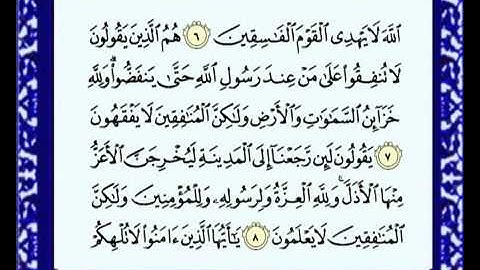 ٱللَّهَ لَا يَهۡدِى ٱلۡقَوۡمَ ٱلۡفَـٰسِقِينَ ٦ هُمُ ٱلَّذِينَ يَقُولُونَ
لَا تُنفِقُواْ عَلَىٰ مَنۡ عِندَ رَسُولِ ٱللَّهِ حَتَّىٰ يَنفَضُّواْۗ وَلِلَّهِ
خَزَآئِنُ ٱلسَّمَـٰوَٰتِ وَٱلۡأَرۡضِ وَلَـٰكِنَّ ٱلۡمُنَـٰفِقِينَ لَا يَفۡقَهُونَ
٧ يَقُولُونَ لَئِن رَّجَعۡنَآ إِلَى ٱلۡمَدِينَةِ لَيُخۡرِجَنَّ ٱلۡأَعَزُّ
مِنۡهَا ٱلۡأَذَلَّۚ وَلِلَّهِ ٱلۡعِزَّةُ وَلِرَسُولِهِۦ وَلِلۡمُؤۡمِنِينَ وَلَـٰكِنَّ
ٱلۡمُنَـٰفِقِينَ لَا يَعۡلَمُونَ ٨ يَـٰٓأَيُّهَا ٱلَّذِينَ ءَامَنُواْ لَا تُلۡهِكُمۡ